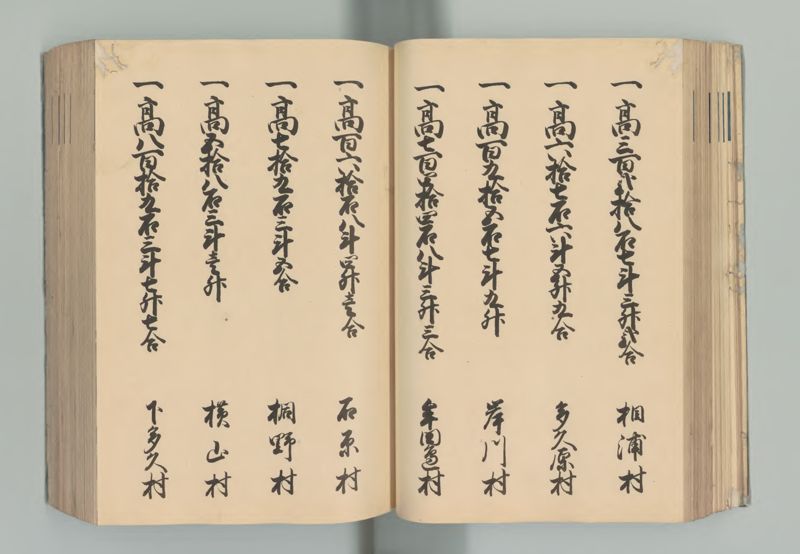 一高三百弐拾八石七斗三升弐合 相浦村
一高六拾七石六斗五升九合 多久原村
一高百九拾五石七斗九升 岸川村
一高七百五拾四石八斗三升三合 牟田辺村
一高百六拾石八斗四升壱合 石原村
一高七拾九石三斗五合 桐野村
一高五拾八石三斗壱升 横山村
一高八百拾九石三斗七升七合 下多久村